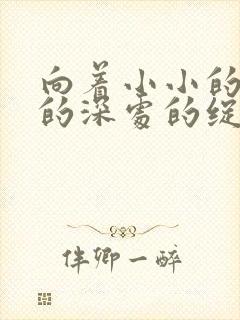 向着小小的
的深处的绽
伴卿一醉